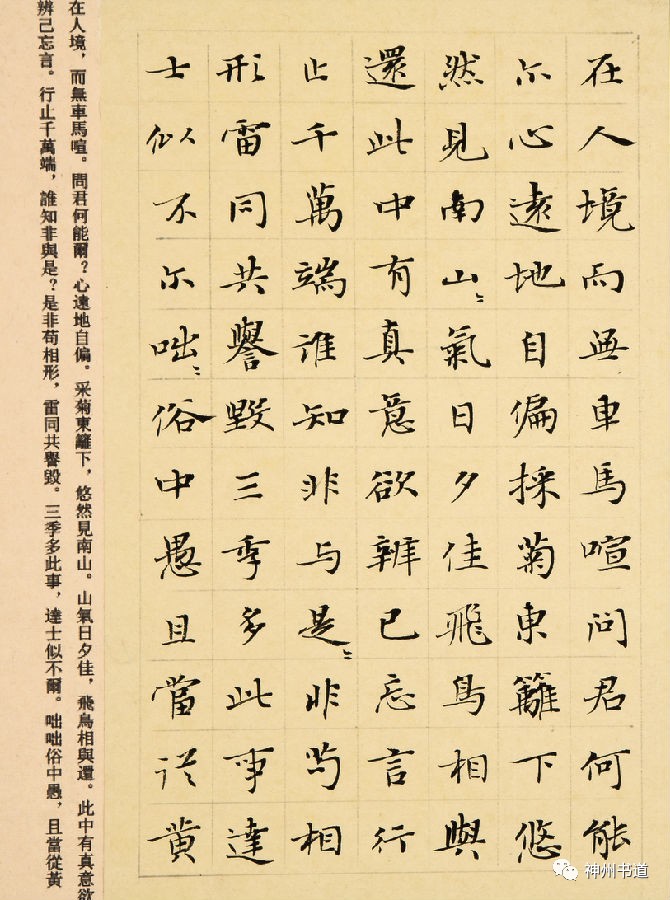 在人境而無車馬喧問君何能
尔心遠地自偏採菊東籬下悠
然見南山〻氣日夕佳飛鳥相與
還此中有真意欲辨已忘言行
止千萬端誰知非与是〻非苟相
形雷同共譽毀三季多此事達
士似不尔咄〻俗中愚且當從黄
在人境，而無車馬喧。問君何能爾？心遠地自偏。采菊東籬下，悠然見南山。山氣日夕佳，飛鳥相與還。此中有真意欲
辨己忘言。行止千萬端，誰知非與是？是非苟相形，雷同共譽毀。三季多此事，達士似不爾。咄咄俗中愚，且當從黃
神州书道